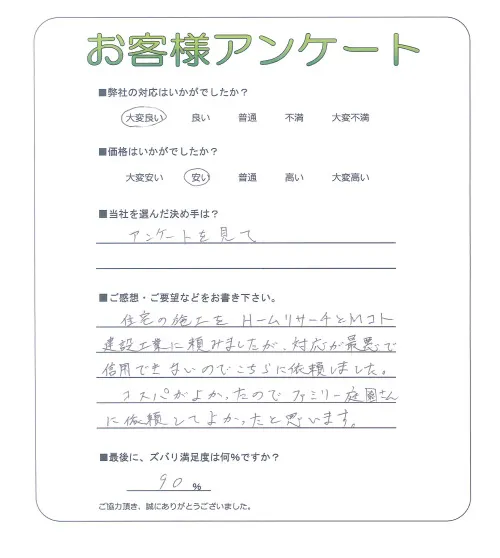 お客様アンケート
■弊社の対応はいかがでしたか？
大変良い 良い 普通 不満 大変不満
■価格はいかがでしたか？
大変安い 安い 普通 高い 大変高い
■当社を選んだ決め手は？
アンケートを見て
■ご感想・ご要望などをお書き下さい。
住宅の施工を ホームリサーチとMコト
建設工業に頼みましたが、対応が最悪で
信用できないのでこちらに依頼しました。
コスパがよかったので ファミリー庭園さん
に依頼してよかったと思います。
■最後に、ズバリ満足度は何%ですか？
90 %
ご協力頂き、誠にありがとうございました。